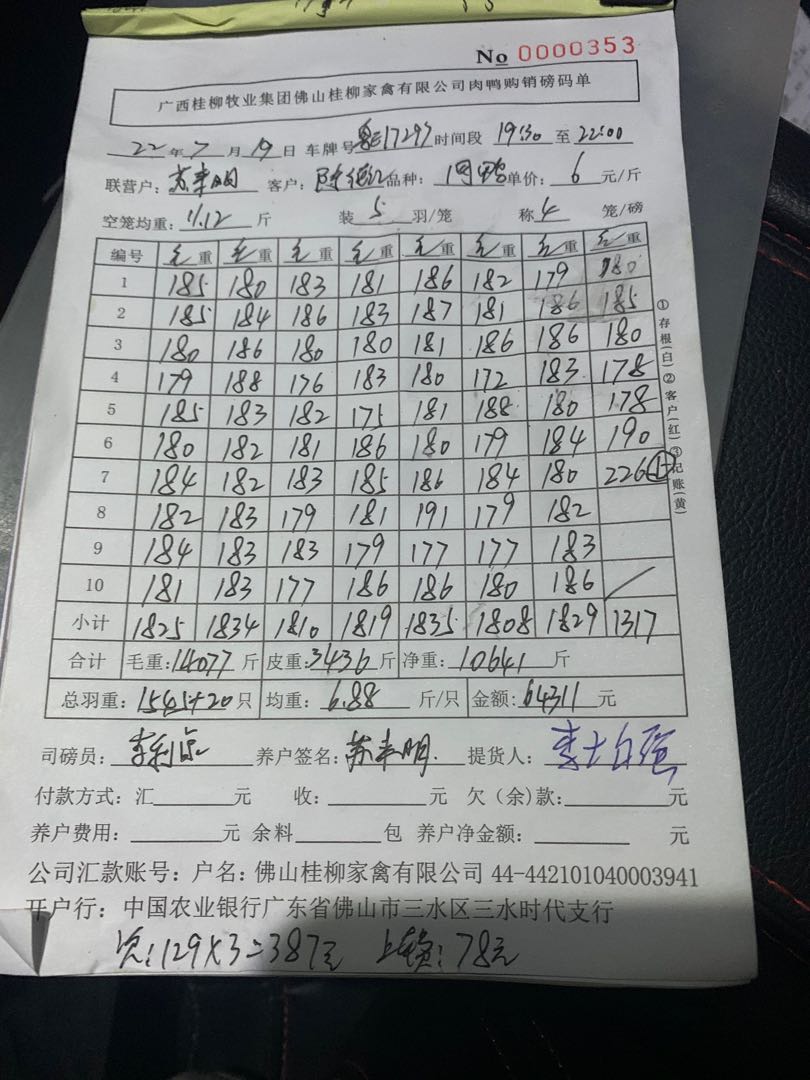 No 0000353
广西桂柳牧业集团佛山桂柳家禽有限公司肉鸭购销磅码单
22年7月19日 车牌号 17297 时间段 19:30 至 22:00
联营户: 苏来明 客户: 品种: 单价: 6 元/斤
空笼均重: 11.12 斤 装 5 羽/笼 称 4 笼/磅
编号 毛重 毛重 毛重 毛重 毛重 毛重 毛重 毛重
1 185 180 183 181 186 182 179 180
2 185 184 186 183 187 181 186 185
3 180 186 180 180 181 186 186 180
4 179 188 176 183 180 172 183 178
5 185 183 182 175 181 188 180 178
6 180 182 181 186 180 179 184 190
7 184 182 183 185 186 184 180 226
8 182 183 179 181 191 179 182
9 184 183 183 179 177 177 183
10 181 183 177 186 186 180 186
小计 1825 1834 1810 1819 1835 1808 1829 1317
合计 毛重: 14077 斤 皮重: 3436 斤 净重: 10641 斤
总羽重: 1545+20 只 均重: 6.88 斤/只 金额: 64311 元
司磅员: 养户签名: 苏来明 提货人:
付款方式: 汇 元 收: 元 欠(余)款: 元
养户费用: 元 余料 包 养户净金额: 元
公司汇款账号: 户名: 佛山桂柳家禽有限公司 44-442101040003941
开户行: 中国农业银行广东省佛山市三水区三水时代支行
129×3=387元 78元
①存根(白)②客户(红)③记账(黄)